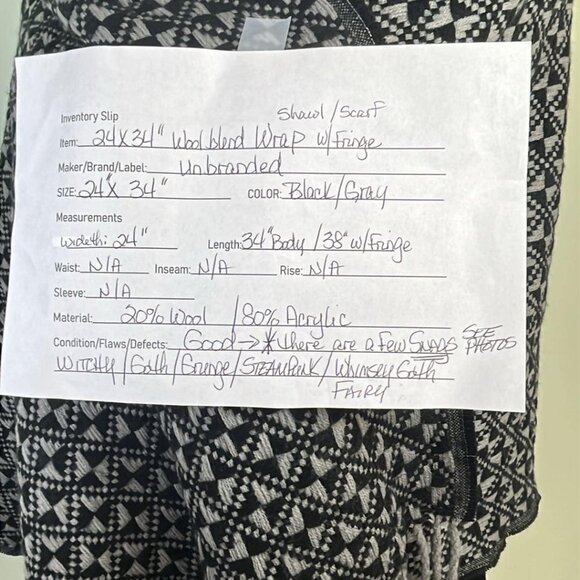 Shawl/Scarf
Inventory Slip
Item: 24X34" Wool blend Wrap w/Fringe
Maker/Brand/Label: Unbranded
SIZE: 24"X 34" COLOR: Black/Gray
Measurements
Wideth: 24" Length: 34" Body/38" w/Fringe
Waist: N/A Inseam: N/A Rise: N/A
Sleeve: N/A
Material: 20% Wool /80% Acrylic
Condition/Flaws/Defects: Good → * there are a few Snags SEE PHOTOS
WITCHY/Goth/Grunge/STEAMPUNK/Whimsey Goth
FAIRY